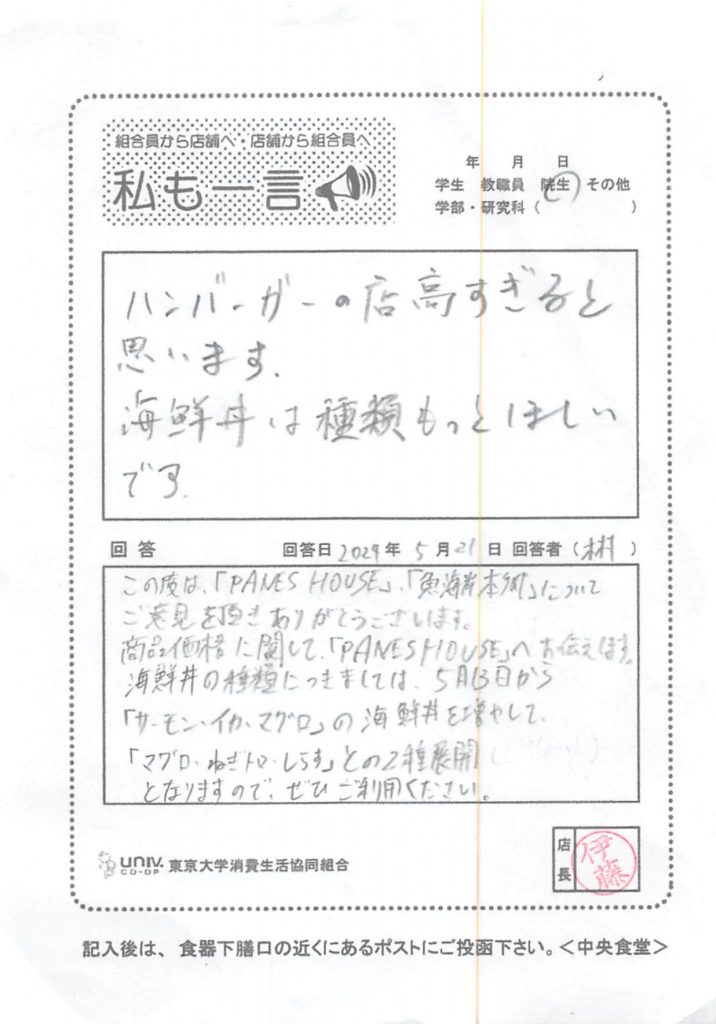 組合員から店舗へ・店舗から組合員へ
私も一言
年 月 日
学生 教職員 院生 その他
学部・研究科( )
ハンバーガーの店高すぎると
思います.
海鮮丼は種類もっとほしい
です.
回答 回答日 2024年 5月21日 回答者( )
この度は、「PANES HOUSE」、「魚海岸本郷」について
ご意見を頂きありがとうございます。
商品価格に関して、「PANES HOUSE」へお伝えします。
海鮮丼の種類につきましては、5月13日から
「サーモン・イカ・マグロ」の海鮮丼を増やして、
「マグロ・ねぎトロ・しらす」との2種展開
となりますので、ぜひご利用ください。
店長 伊藤
UNIV. CO-OP 東京大学消費生活協同組合
記入後は、食器下膳口の近くにあるポストにご投函下さい。<中央食堂>